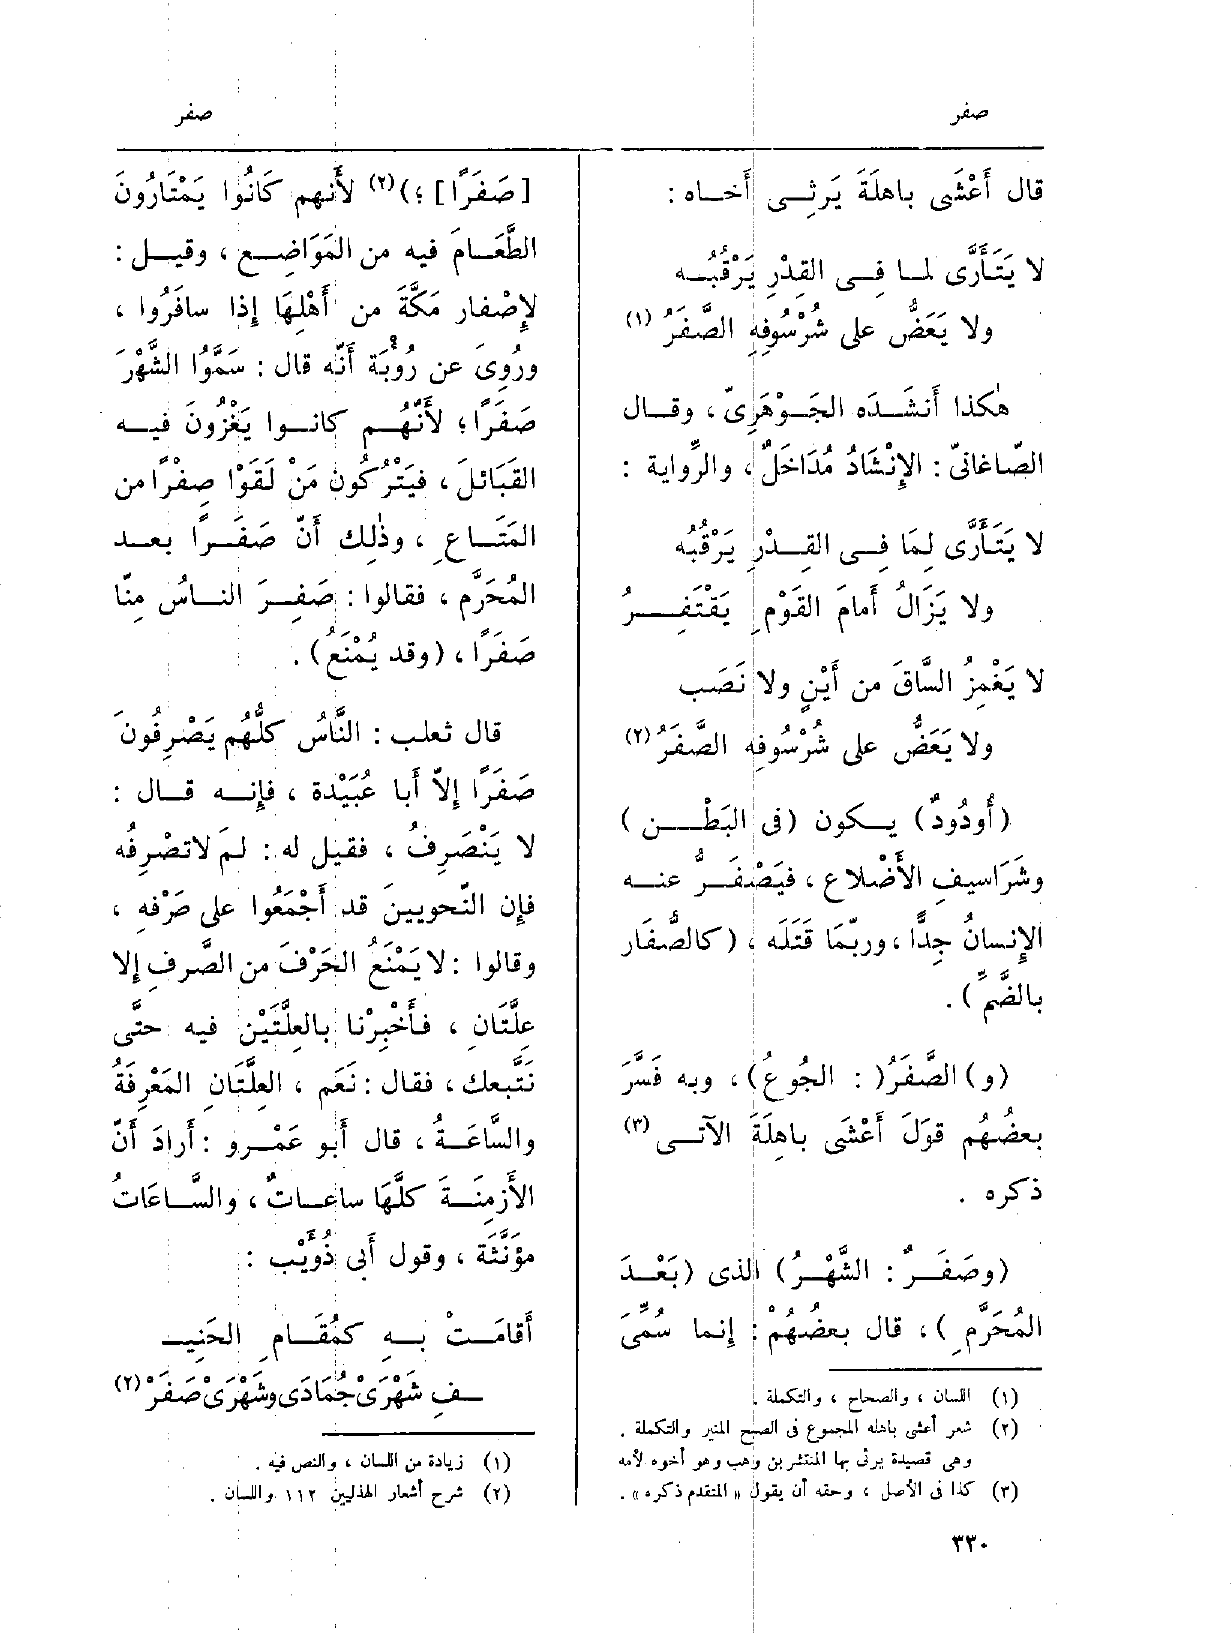 صفر
صفر
قال أَعْشَى باهلَةَ يَرثِى أَخاه :
لا يَتَأَرَّى لما فى القِدْرِ يَرْقُبُه
ولا يَعَضُّ على شُرْسُوفِهِ الصَّفَرُ (١)
هٰكذا أَنشَدَه الجَوْهَرِىّ ، وقال
الصّاغانىّ : الإِنْشَادُ مُدَاخَلٌ ، والرِّواية :
لا يَتَأَرَّى لِمَا فى القِدْرِ يَرْقُبُه
ولا يَزَالُ أَمامَ القَوْمِ يَقْتَفِرُ
لا يَغْمِزُ السَّاقَ من أَيْنٍ ولا نَصَبٍ
ولا يَعَضُّ على شُرْسُوفِه الصَّفَرُ (٢)
(أَو دُودٌ) يكون (فى البَطْنِ)
وشَرَاسيفِ الأَضْلاعِ ، فيَصْفَرُّ عنه
الإِنسانُ جِدًّا ، وربّمَا قَتَلَه ، (كالصُّفَارِ
بالضَّمِّ) .
(و) الصَّفَرُ( : الجُوعُ) ، وبه فَسَّرَ
بعضُهم قولَ أَعْشَى باهلَةَ الآتى (٣)
ذكره .
(وصَفَرٌ : الشَّهْرُ) الذى (بَعْدَ
المُحَرَّمِ) ، قال بعضُهُمْ : إنما سُمِّىَ
(١) اللسان ، والصحاح ، والتكملة .
(٢) شعر أعشى باهله المجموع فى الصبح المنير والتكملة .
وهى قصيدة يرثى بها المنتشر بن وهب وهو أخوه لأمه
(٣) كذا فى الأصل ، وحقه أن يقول « المتقدم ذكره » .
[صَفَرًا] ؛)(٢) لأَنهم كَانُوا يَمْتَارُونَ
الطَّعَامَ فيه من المَوَاضِع ، وقيل :
لإِصْفار مَكَّةَ من أَهْلِهَا إِذا سافَرُوا ،
ورُوِىَ عن رُؤْبَة أَنَّه قال : سَمَّوُا الشَّهْرَ
صَفَرًا؛ لأَنَّهُم كانوا يَغْزُونَ فيه
القَبَائلَ ، فيَتْرُكُون مَنْ لَقُوْا صِفْرًا من
المَتَاعِ ، وذٰلك أَنّ صَفَرًا بعد
المُحَرَّم ، فقالوا : صَفِرَ الناسُ مِنّا
صَفَرًا ، (وقد يُمْنَعُ) .
قال ثعلب : النَّاسُ كلُّهُم يَصْرِفُونَ
صَفَرًا إِلاّ أَبا عُبَيْدة ، فإِنه قال :
لا يَنْصَرِفُ ، فقيل له : لمَ لاتصْرِفُه
فإِن النّحويين قد أَجْمَعُوا على صَرْفه ،
وقالوا : لا يَمْنَعُ الحَرْفَ من الصَّرف إِلا
علَّتَان ، فأَخْبِرْنا بالعِلَّتَيْن فيه حتَّى
نَتَّبعك ، فقال : نَعَم ، العِلَّتَانِ المَعْرِفَةُ
والسَّاعَةُ ، قال أَبو عَمْرو : أَرادَ أَنّ
الأَزمِنَةَ كلَّهَا ساعاتٌ ، والسَّاعَاتُ
مؤنَّثَة ، وقول أَبى ذُؤَيْب :
أَقامَتْ به كمُقَامِ الحَنِيـ
ـفِ شَهْرَىْ جُمَادَى وشَهْرَىْ صَفَرْ (٢)
(١) زيادة من اللسان ، والنص فيه .
(٢) شرح أشعار الهذليين ١١٢ واللسان .
٣٣٠